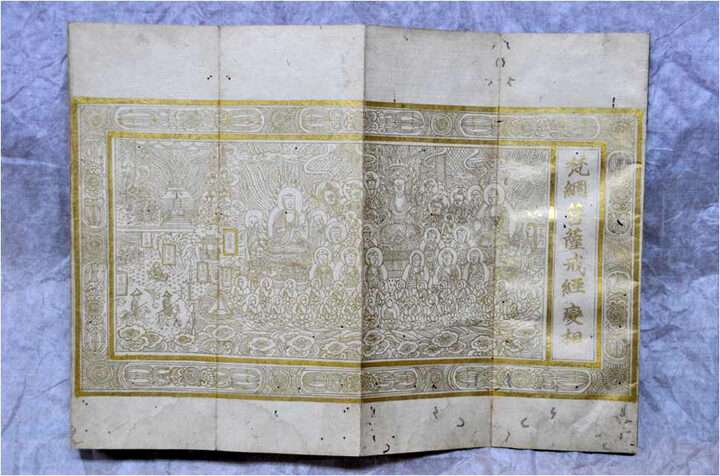 梵網菩薩戒経變相